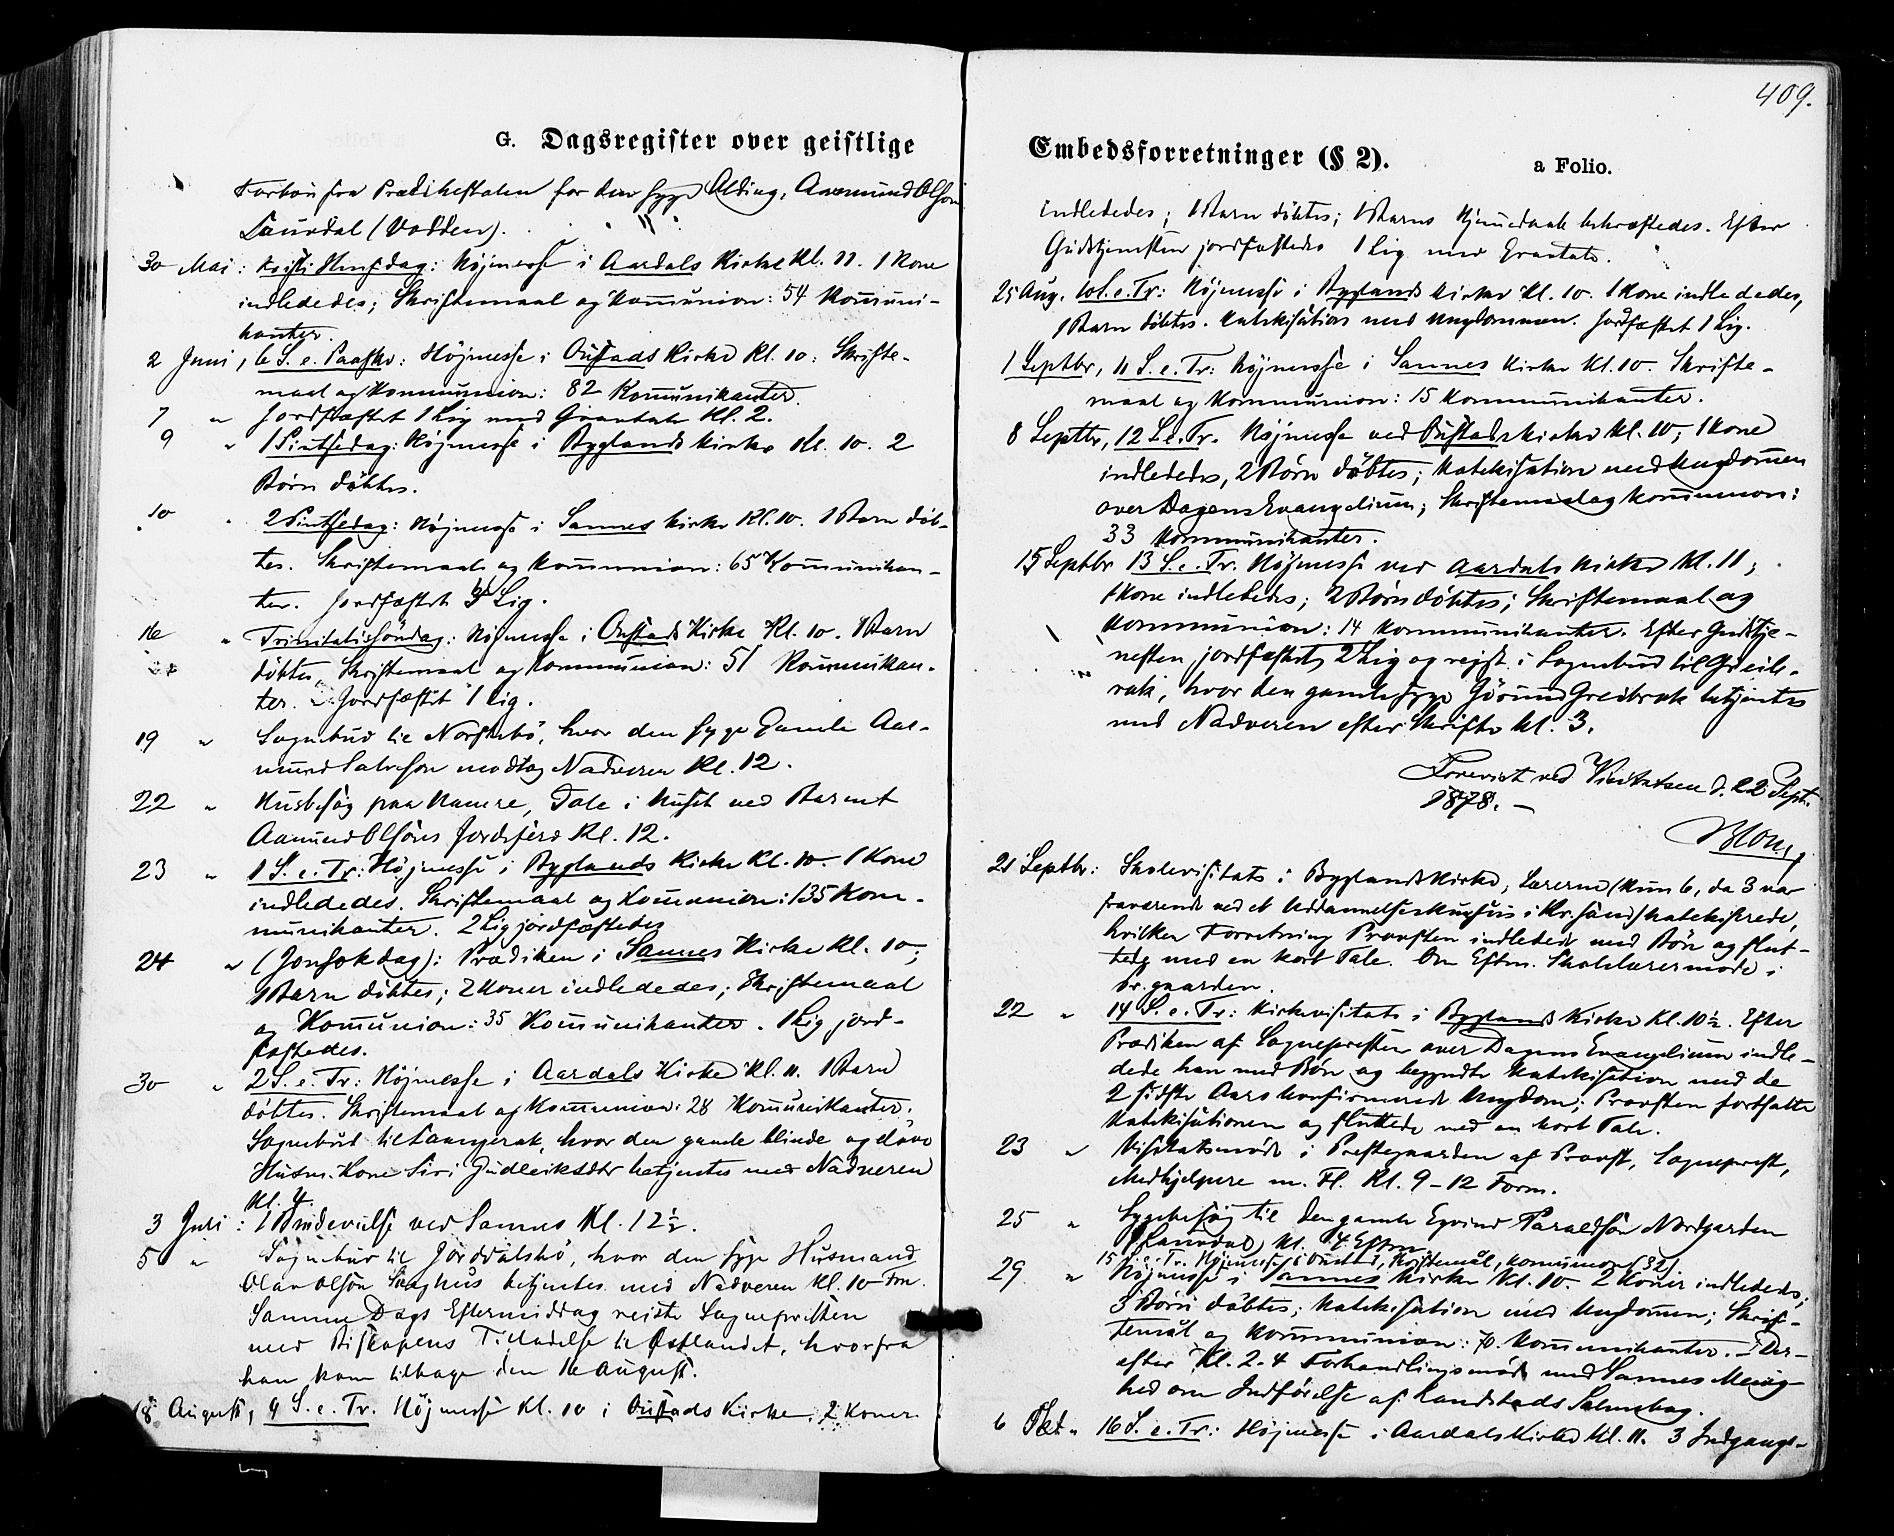 409.
G. Dagsregister over geistlige
Forbøn fra Prædikestolen for den syge Olding, Aamund Olsøn
Laurdal (Vodden).
30 Mai: Kristi Himfdag: Højmesse i Aardals Kirke Kl. 11. 1 Kone
indlededes; Skriftemaal og Kommunion: 54 Kommuni-
kanter.
2 Juni, 6 S. e. Paaske: Højmesse i Oustads Kirke Kl. 10: Skrifte-
maal og Kommunion: 82 Kommunikanter.
7 " Jordfæstet 1 Lig med Gravtale Kl. 2.
9 " 1 Pintsedag: Højmesse i Byglands Kirke Kl. 10. 2
Børn døbtes.
10 " 2 Pintsedag: Højmesse i Sannes Kirke Kl. 10. 1 Barn døb-
tes. Skriftemaal og Kommunion: 65 Kommunikan-
ter. Jordfæstet 3 Lig.
16 " Trinitatissøndag: Højmesse i Oustads Kirke Kl. 10. 1 Barn
døbtes, Skriftemaal og Kommunion: 51 Kommunikan-
ter. Jordfæstet 1 Lig.
19 " Sognebud til Norstebø, hvor den syge Gamle Aa-
mund Salvesøn modtog Nadveren Kl. 12.
22 " Husbesøg paa Hamre, Tale i Huset ved Barnet
Aamund Olsøns Jordsferd Kl. 12.
23 " 1 S. e. Tr: Højmesse i Byglands Kirke Kl. 10. 1 Kone
indlededes. Skriftemaal og Komunion: 135 Kom-
munikanter. 2 Lig jordfæstedes
24 " (Jonsokdag): Prædiken i Sannes Kirke Kl. 10;
1 Barn døbtes; 2 Koner indlededes; Skriftemaal
og Komunion: 35 Komunikanter. 1 Lig jord-
fæstedes.
30 " 2 S. e. Tr: Højmesse i Aardals Kirke Kl. 11. 1 Barn
døbtes. Skriftemaal og Kommunion: 28 Kommunikanter.
Sognebud til Langerak, hvor den gamle blinde og døve
Husm. Kone Siri Gudleiksdtr betjentes med Nadveren
Kl. 4.
3 Juli: 1 Brudevielse ved Sannes Kl. 12 1/2.
5 " Sognebud til Jorddalsbø, hvor den syge Husmand
Olav Olsøn betjentes med Nadveren Kl. 10 Fm.
Samme Dags Eftermiddag rejste Sognepresten
med Biskopens Tilladelse til Østlandet, hvorfra
han kom tilbage den 16 August.
18 August, 9 S. e. Tr. Højmesse Kl. 10 i Oustads Kirke. 2 Koner
Embedsforretninger (§ 2).
a Folio.
indlededes; 1 Barn døbtes; 1 Barns Hjemedaab bekræftedes. Efter
Gudstjenesten jordfæstedes 1 Lig med Gravtale.
25 Aug. 10 S. e. Tr: Højmesse i Byglands Kirke Kl. 10. 1 Kone indlededes,
1 Barn døbtes. Katekisation med Ungdommen. Jordfæstet 1 Lig.
1 Septbr, 11 S. e. Tr: Højmesse i Sannes Kirke Kl. 10. Skrifte-
maal og Kommunion: 15 Kommunikanter.
8 Septbr, 12 S. e. Tr. Højmesse ved Oustads Kirke Kl. 10; 1 Kone
indlededes, 2 Børn døbtes; Katekisation med Ungdomen
over Dagens Evangelium; Skriftemaal og Kommunion:
33 Kommunikanter.
15 Septbr 13 S. e. Tr. Højmesse ved Aardals Kirke Kl. 11;
1 Kone indlededes; 2 Børn døbtes; Skriftemaal og
Kommunion: 14 Kommunikanter. Efter Gudstje-
nesten jordfæstet 2 Lig og rejst i Sognebud til Greib-
rok, hvor den gamle syge Jørund Greibrok betjentes
med Nadveren efter Skrifte Kl. 3.
Forevist ved Visitatsen d. 22 Sept.
1878. –
21 Septbr: Skolevisitats i Byglands Kirke, Lærerne (kun 6, da 3 var
fraværende ved et Uddannelseskursus i Kr.sand) katekiserede,
hvilken Forretning Provsten indledede med Bøn og slut-
tede med en kort Tale. Om Eftm. Skolelærermøde i
Pr.gaarden.
22 " 14 S. e. Tr: Kirkevisitats i Byglands Kirke Kl. 10 1/2. Efter
Prædiken af Sognepresten over Dagens Evangelium indle-
dede han med Bøn og begyndte Katekisation med de
2 sidste Aars konfirmerede Ungdom; Provsten fortsatte
Katekisationen og sluttede med en kort Tale.
23 " Visitatsmøde i Prestegaarden af Provst, Sogneprest,
Medhjelpere m. Fl. Kl. 9-12 Form.
25 " Sygebesøg til den gamle Eyvind Taraldsøn Nordgarden
Kl. 4 Eftm.
15 S. e. Tr. Højmesse i Oustad, Skriftemål, Komunion (32).
29 " Højmesse i Sannes Kirke Kl. 10. 2 Koner indlededes;
3 Børn døbtes; Katekisation med Ungdomen; Skrif-
temål og Kommunion: 70 Komunikanter. – Der-
efter Kl. 2-4 Forhandlingsmøde med Sannes Menig-
hed om Indførelse af Landstads Salmebog.
6 Okt " 16 S. e. Tr: Højmesse i Aardals Kirke Kl. 11. 3 Indgangs-